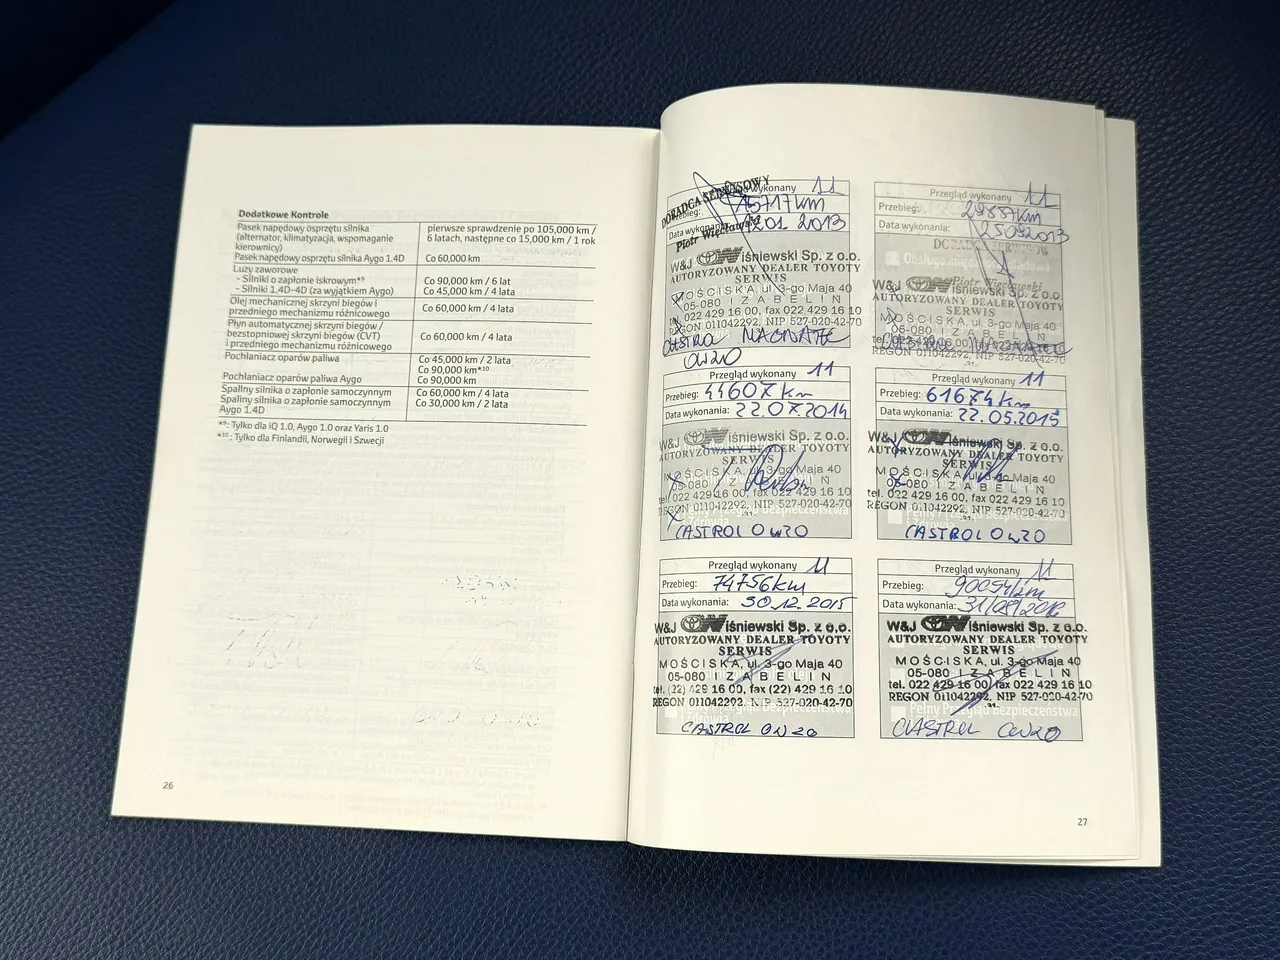 Dodatkowe Kontrole
Pasek napędowy osprzętu silnika
(alternator, klimatyzacja, wspomaganie
kierownicy)
pierwsze sprawdzenie po 105,000 km /
6 latach, następne co 15,000 km / 1 rok
Pasek napędowy osprzętu silnika Aygo 1.4D
Co 60,000 km
Luzy zaworowe
- Silniki o zapłonie iskrowym*⁹
- Silniki 1.4D-4D (za wyjątkiem Aygo)
Co 90,000 km / 6 lat
Co 45,000 km / 4 lata
Olej mechanicznej skrzyni biegów i
przedniego mechanizmu różnicowego
Co 60,000 km / 4 lata
Płyn automatycznej skrzyni biegów /
bezstopniowej skrzyni biegów (CVT)
i przedniego mechanizmu różnicowego
Co 60,000 km / 4 lata
Pochłaniacz oparów paliwa
Co 45,000 km / 2 lata
Co 90,000 km*¹⁰
Pochłaniacz oparów paliwa Aygo
Co 90,000 km
Spaliny silnika o zapłonie samoczynnym
Spaliny silnika o zapłonie samoczynnym
Aygo 1.4D
Co 60,000 km / 4 lata
Co 30,000 km / 2 lata
*⁹: Tylko dla iQ 1.0, Aygo 1.0 oraz Yaris 1.0
*¹⁰: Tylko dla Finlandii, Norwegii i Szwecji
26
DORADCA SERWISOWY
wykonany 11
Przebieg: 15717km
Data wykonania: 2013
Piotr Więcławski
W&J Wiśniewski Sp. z o.o.
AUTORYZOWANY DEALER TOYOTY
SERWIS
MOŚCISKA, ul. 3-go Maja 40
05-080 IZABELIN
tel. 022 429 16 00, fax 022 429 16 10
REGON 011042292, NIP 527-020-42-70
CASTROL MAGNATEC
0W20
Przegląd wykonany 11
Przebieg: km
Data wykonania: 2013
Obsługa międzyprzeglądowa
Piotr Więcławski
W&J Wiśniewski Sp. z o.o.
AUTORYZOWANY DEALER TOYOTY
SERWIS
MOŚCISKA, ul. 3-go Maja 40
05-080 IZABELIN
tel. 022 429 16 00, fax 022 429 16 10
REGON 011042292, NIP 527-020-42-70
Przegląd wykonany 11
Przebieg: 44607km
Data wykonania: 22.07.2014
W&J Wiśniewski Sp. z o.o.
AUTORYZOWANY DEALER TOYOTY
SERWIS
MOŚCISKA, ul. 3-go Maja 40
05-080 IZABELIN
tel. 022 429 16 00, fax 022 429 16 10
REGON 011042292, NIP 527-020-42-70
Pełny Przegląd Bezpieczeństwa
i Zdrowia
CASTROL 0W20
Przegląd wykonany 11
Przebieg: 61674km
Data wykonania: 22.05.2015
W&J Wiśniewski Sp. z o.o.
AUTORYZOWANY DEALER TOYOTY
SERWIS
MOŚCISKA, ul. 3-go Maja 40
05-080 IZABELIN
tel. 022 429 16 00, fax 022 429 16 10
REGON 011042292, NIP 527-020-42-70
Pełny Przegląd Bezpieczeństwa
i Zdrowia
CASTROL 0W20
Przegląd wykonany 11
Przebieg: 74756km
Data wykonania: 30.12.2015
W&J Wiśniewski Sp. z o.o.
AUTORYZOWANY DEALER TOYOTY
SERWIS
MOŚCISKA, ul. 3-go Maja 40
05-080 IZABELIN
tel. (22) 429 16 00, fax (22) 429 16 10
REGON 011042292, NIP 527-020-42-70
Pełny Przegląd Bezpieczeństwa
i Zdrowia
CASTROL 0W20
Przegląd wykonany 11
Przebieg: 90054km
Data wykonania:
W&J Wiśniewski Sp. z o.o.
AUTORYZOWANY DEALER TOYOTY
SERWIS
MOŚCISKA, ul. 3-go Maja 40
05-080 IZABELIN
tel. 022 429 16 00, fax 022 429 16 10
REGON 011042292, NIP 527-020-42-70
Pełny Przegląd Bezpieczeństwa
i Zdrowia
CASTROL 0W20
27